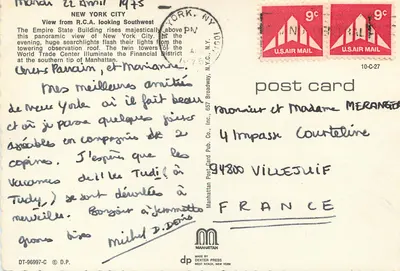 Mardi 22 Avril 1975
NEW YORK CITY
View from R.C.A. looking Southwest
The Empire State Building rises majestically above
this panoramic view of New York City. In the
evening, huge searchlights flash their lights from the
towering observation roof. The twin towers of the
World Trade Center illuminate the Financial District
at the southern tip of Manhattan.
Chers Parrain, et Marianne.
Mes meilleures amitiés
de New York où il fait beau
et où je passe quelques jours
agréables en compagnie de 2
copines. J'espère que les
vacances de l'Ile Tudy (à
Tudy) se sont déroulées à
merveille. Bonjour à
grosses bises Michel D.
DT-96997-C © D.P.
Manhattan Post Card Pub. Co., Inc., 657 Broadway, N.Y.C., N.Y.
MANHATTAN
dp
MADE BY
DEXTER PRESS
WEST NYACK, NEW YORK
YORK, NY
PM
1975
9¢
U.S. AIR MAIL
9¢
U.S. AIR MAIL
10-C-27
post card
Monsieur et Madame MERANGER
4 Impasse Courteline
94800 VILLEJUIF
FRANCE